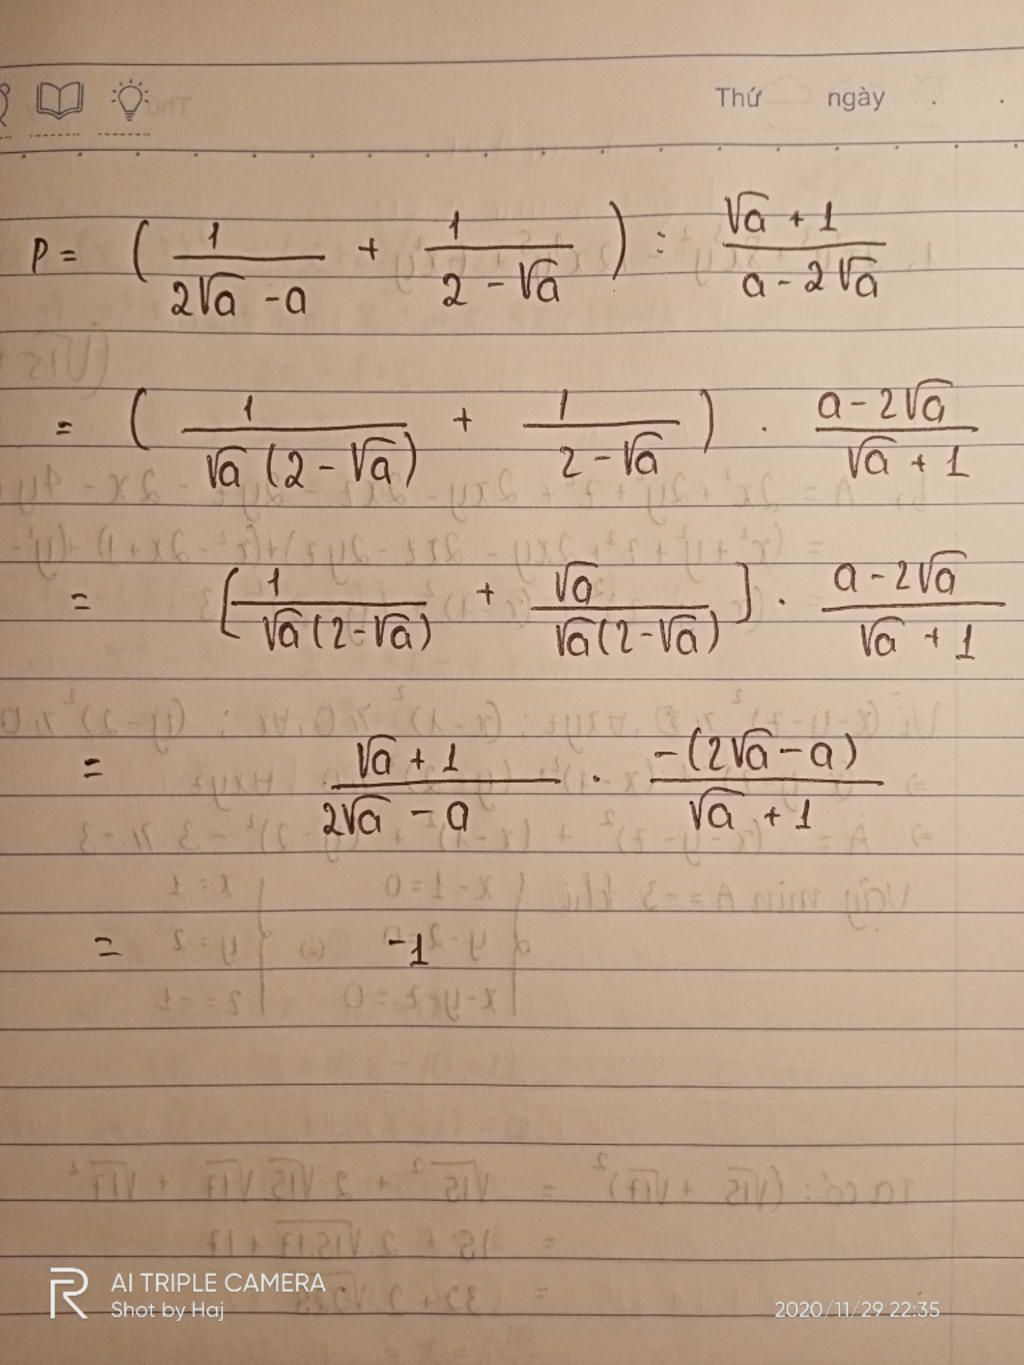 Thứ ngày
P = ( 1/(2√a - a) + 1/(2 - √a) ) : (√a + 1)/(a - 2√a)
= ( 1/(√a (2 - √a)) + 1/(2 - √a) ) . (a - 2√a)/(√a + 1)
= [ 1/(√a (2 - √a)) + √a/(√a (2 - √a)) ] . (a - 2√a)/(√a + 1)
= (√a + 1)/(2√a - a) . (-(2√a - a))/(√a + 1)
= -1
AI TRIPLE CAMERA
Shot by Haj
2020/11/29 22:35